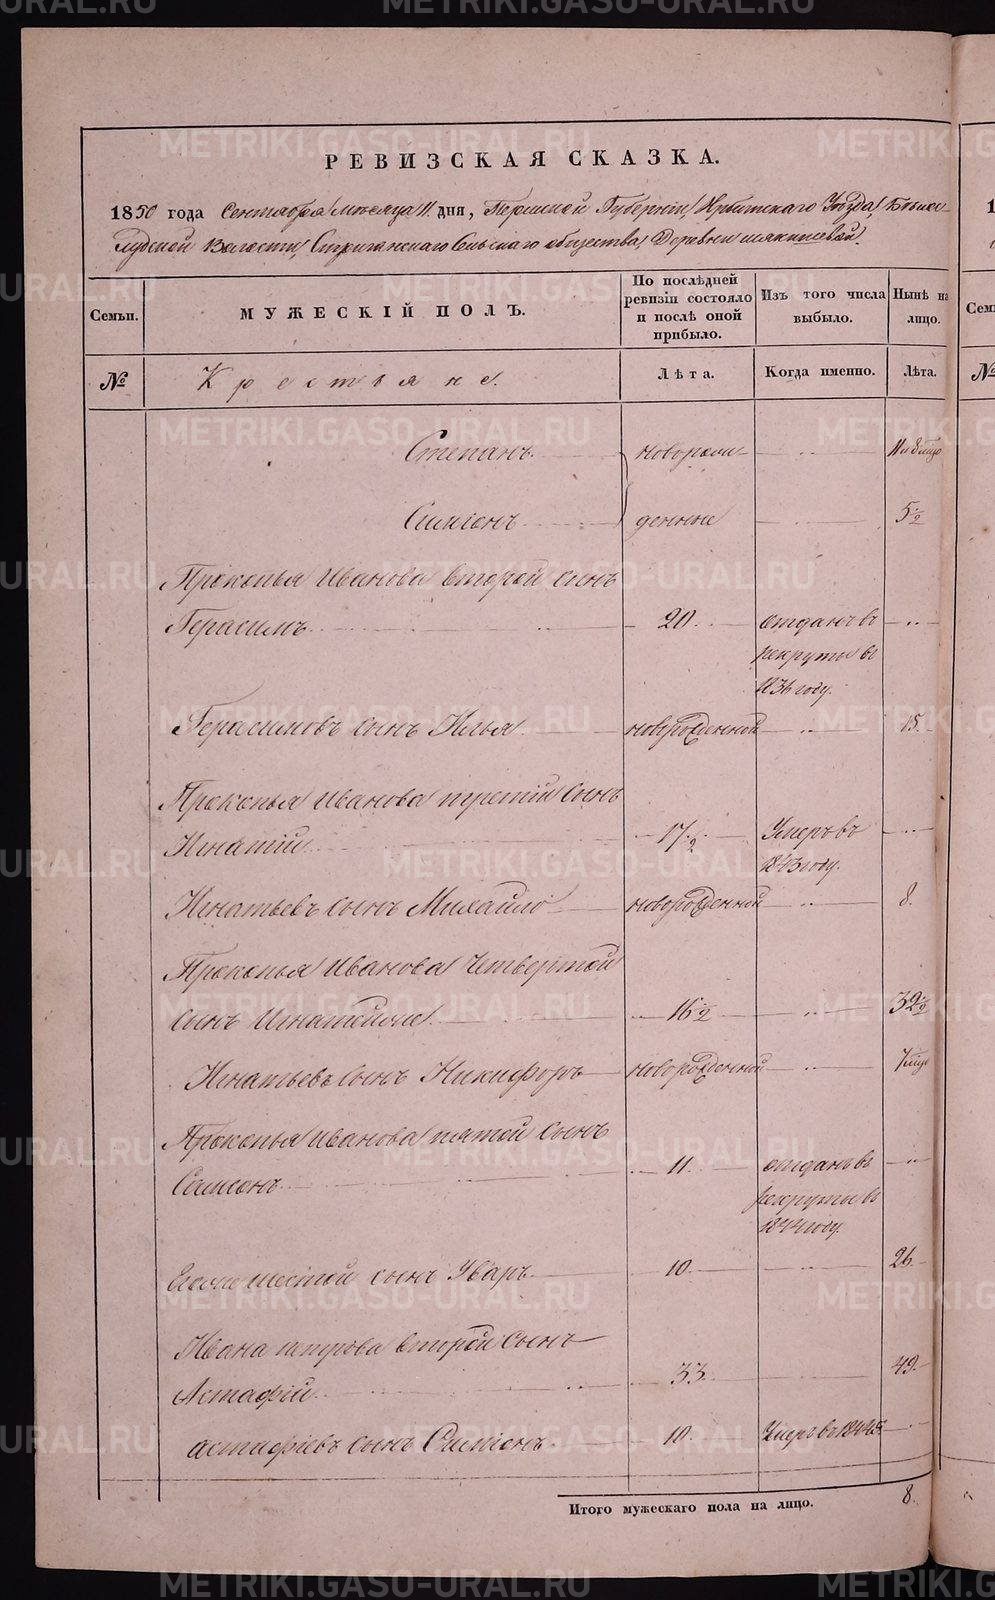 METRIKI.GASO-URAL.RU
РЕВИЗСКАЯ СКАЗКА.
1850 года Сентября Месяца 11 дня, Пермской Губерніи Ирбитскаго Уѣзда
Волости, Стриганскаго Сельскаго общества Деревни
Семьи.
МУЖЕСКІЙ ПОЛЪ.
По послѣдней ревизіи состояло и послѣ оной прибыло.
Изъ того числа выбыло.
Нынѣ на лицо.
№
Крестьяне.
Лѣта.
Когда именно.
Лѣта.
Степанъ новорож-
Симеонъ денные 5½
Прокопья Иванова второй сынъ
Герасимъ 20 отданъ въ
рекруты въ
1836 году.
Герасимовъ сынъ Илья новорожденной 15.
Прокопья Иванова третій сынъ
Игнатій 17½ Умеръ въ
1843 году.
Игнатьевъ сынъ Михайло новорожденной 8.
Прокопья Иванова четвертой
сынъ Игнатей 16½ 32½
Игнатьевъ сынъ Никифоръ новорожденной
Прокопья Иванова пятой сынъ
Самсонъ 11. отданъ въ
рекруты въ
1844 году.
Его шестой сынъ Уваръ 10. 26.
Ивана петрова второй сынъ
Астафій 33. 49.
астафіевъ сынъ 10. Умеръ въ
Итого мужескаго пола на лицо. 8.